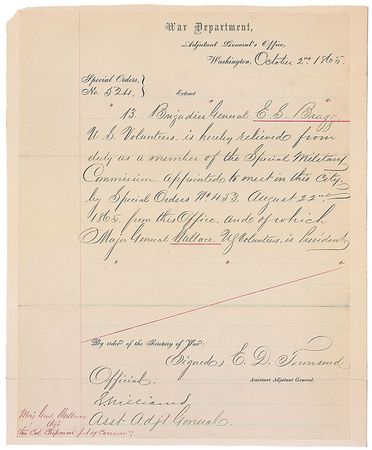 War Department,
Adjutant General's Office,
Washington, October 2nd 1865.
Special Orders,
No. 524.
Extract
13. Brigadier General E. S. Bragg
U. S. Volunteers, is hereby relieved from
duty as a member of the Special Military
Commission appointed to meet in this City,
by Special Orders No 453. August 22nd
1865. from this Office, and of which
Major General Wallace, US Volunteers, is President.
By order of the Secretary of War:
(Signed) E. D. Townsend.
Assistant Adjutant General.
Official.
Williams
Asst. Adjt General.
Maj Genl Wallace
thro Col Chipman J.A. of Commn.